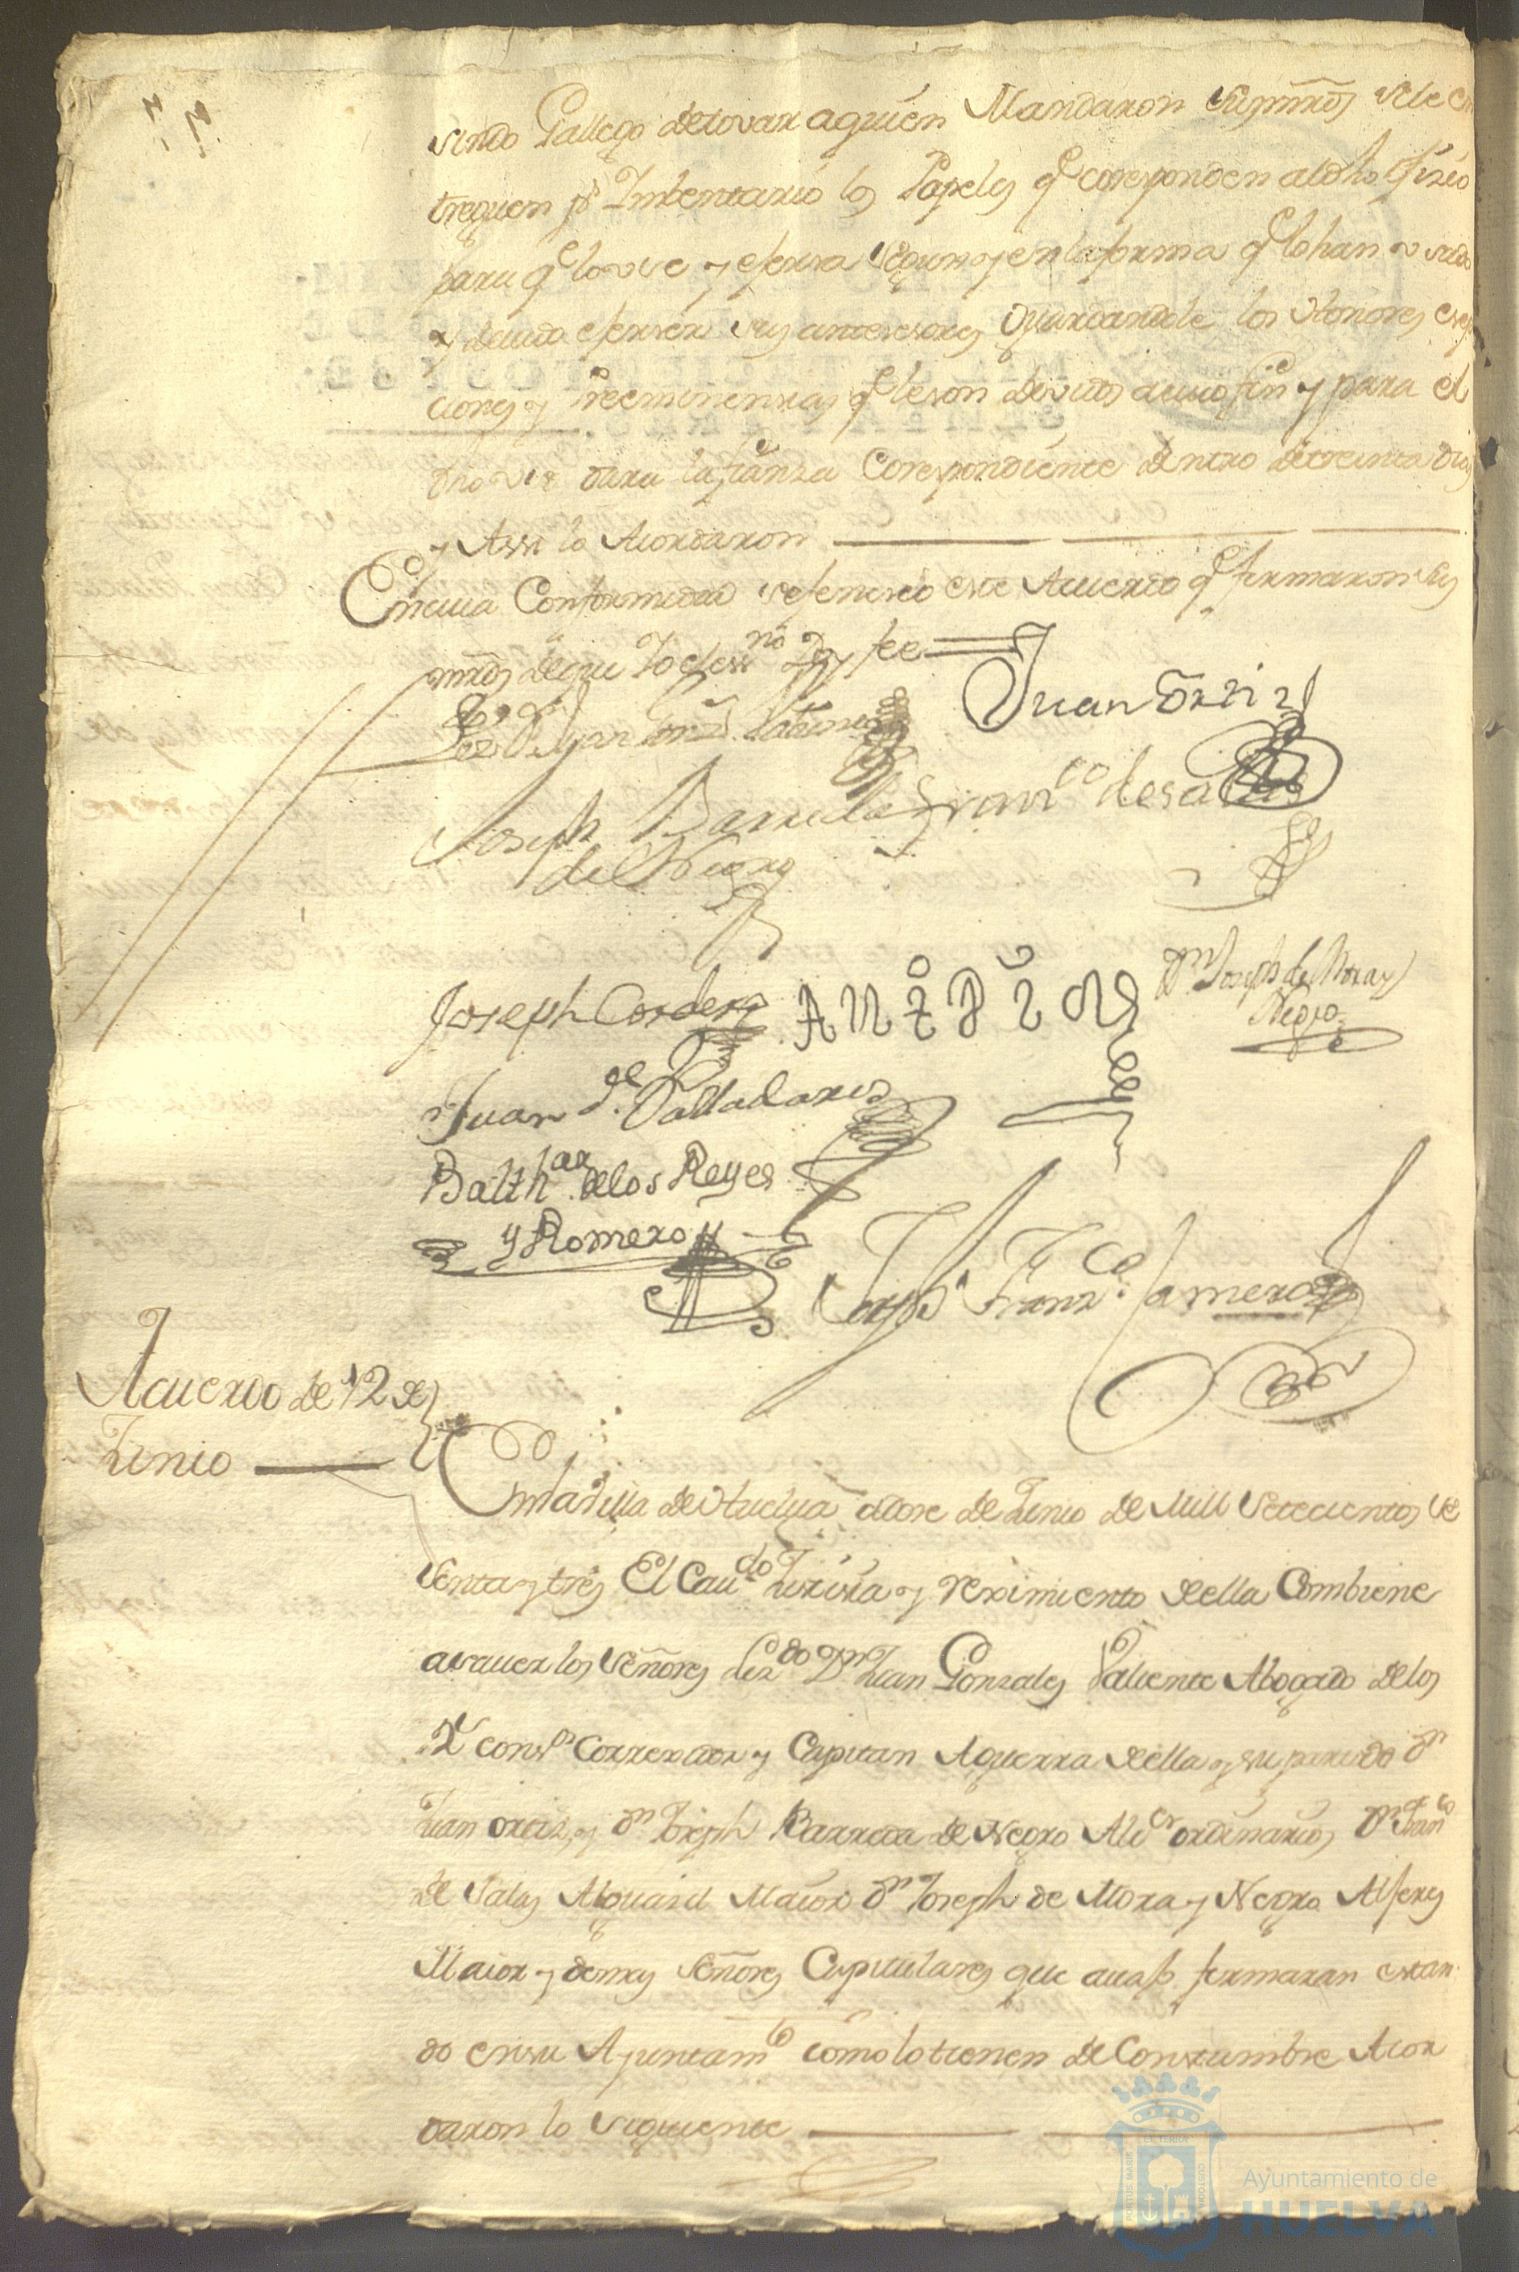 sindo Gallego de tovar a quien Mandaron sus mrds. se le en
treguen pr. Imbentario los Papeles q. coresponden al dho ofisio
para q. lo use y ejersa segun y en la forma q. lo han usado
y deuido ejerser sus antesesores Guardandole los Honores exep
ciones y Preeminensias q. le son devidos a cuio fin y para el
dho uso dara la fianza Corespondiente dentro de treinta dias
y Assi lo Acordaron
En cuia Conformidad se fenesio este Acuerdo q. firmaron sus
mrds de que Yo el essno. Doy fee
Lizdo. Dn. Juan Gonz. Valiente
Juan Ortiz
Joseph Barreda
de Negro
Franco. de salas
Joseph Cordero
Dn. Joseph de Mora y
Negro
Juan de Valladares
Balthar. de los Reyes
y Romero
Joseph Franco. Romero
Acuerdo de 12 de
Junio
En la Villa de Huelua a dose de Junio de Mill Setecientos se
senta y tres El Caudo. Justisia y reximiento de ella Combiene
a saver los Señores Lizdo. Dn. Juan Gonzales Valiente Abogado de los
Rs. consos. Correxidor y Capitan Aguerra de ella y su partido Dn.
Juan ortiz, y Dn. Joseph Barreda de Negro Aldes. ordinarios Dn. Franco.
de Salas Alguasil Maior Dn. Joseph de Mora y Negro Alferes
Maior y demas Señores Capitulares que auajo firmaran estan
do en su Ayuntamto. como lo tienen de Constumbre Acor
daron lo siguiente
Ayuntamiento de
HUELVA